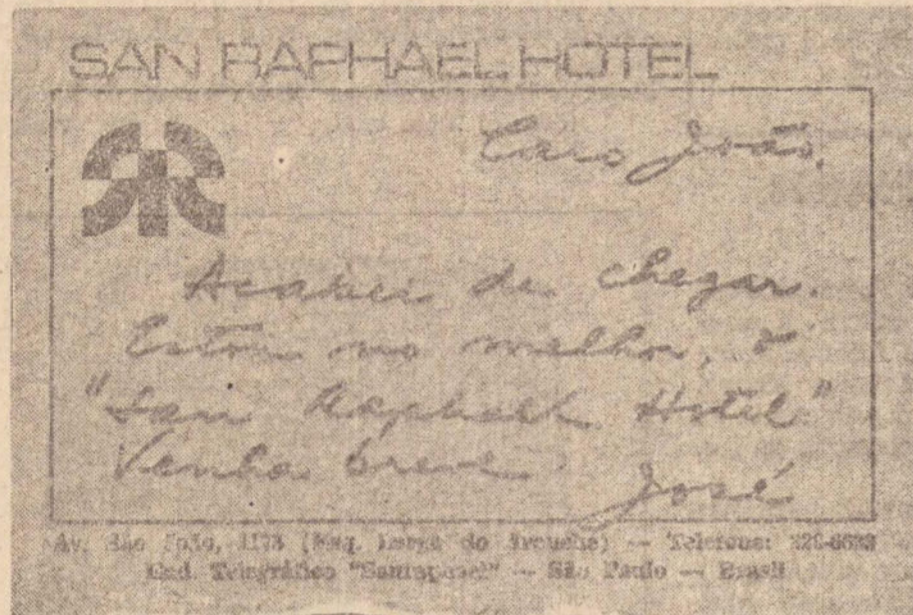 SAN RAPHAEL HOTEL
Caro João.
Acabei de chegar.
Estou no melhor, o
"San Raphael Hotel"
Venha breve
José
Av. São João, 1173 (Esq. Largo do Arouche) — Telefone: 220-6633
End. Telegráfico — São Paulo — Brasil